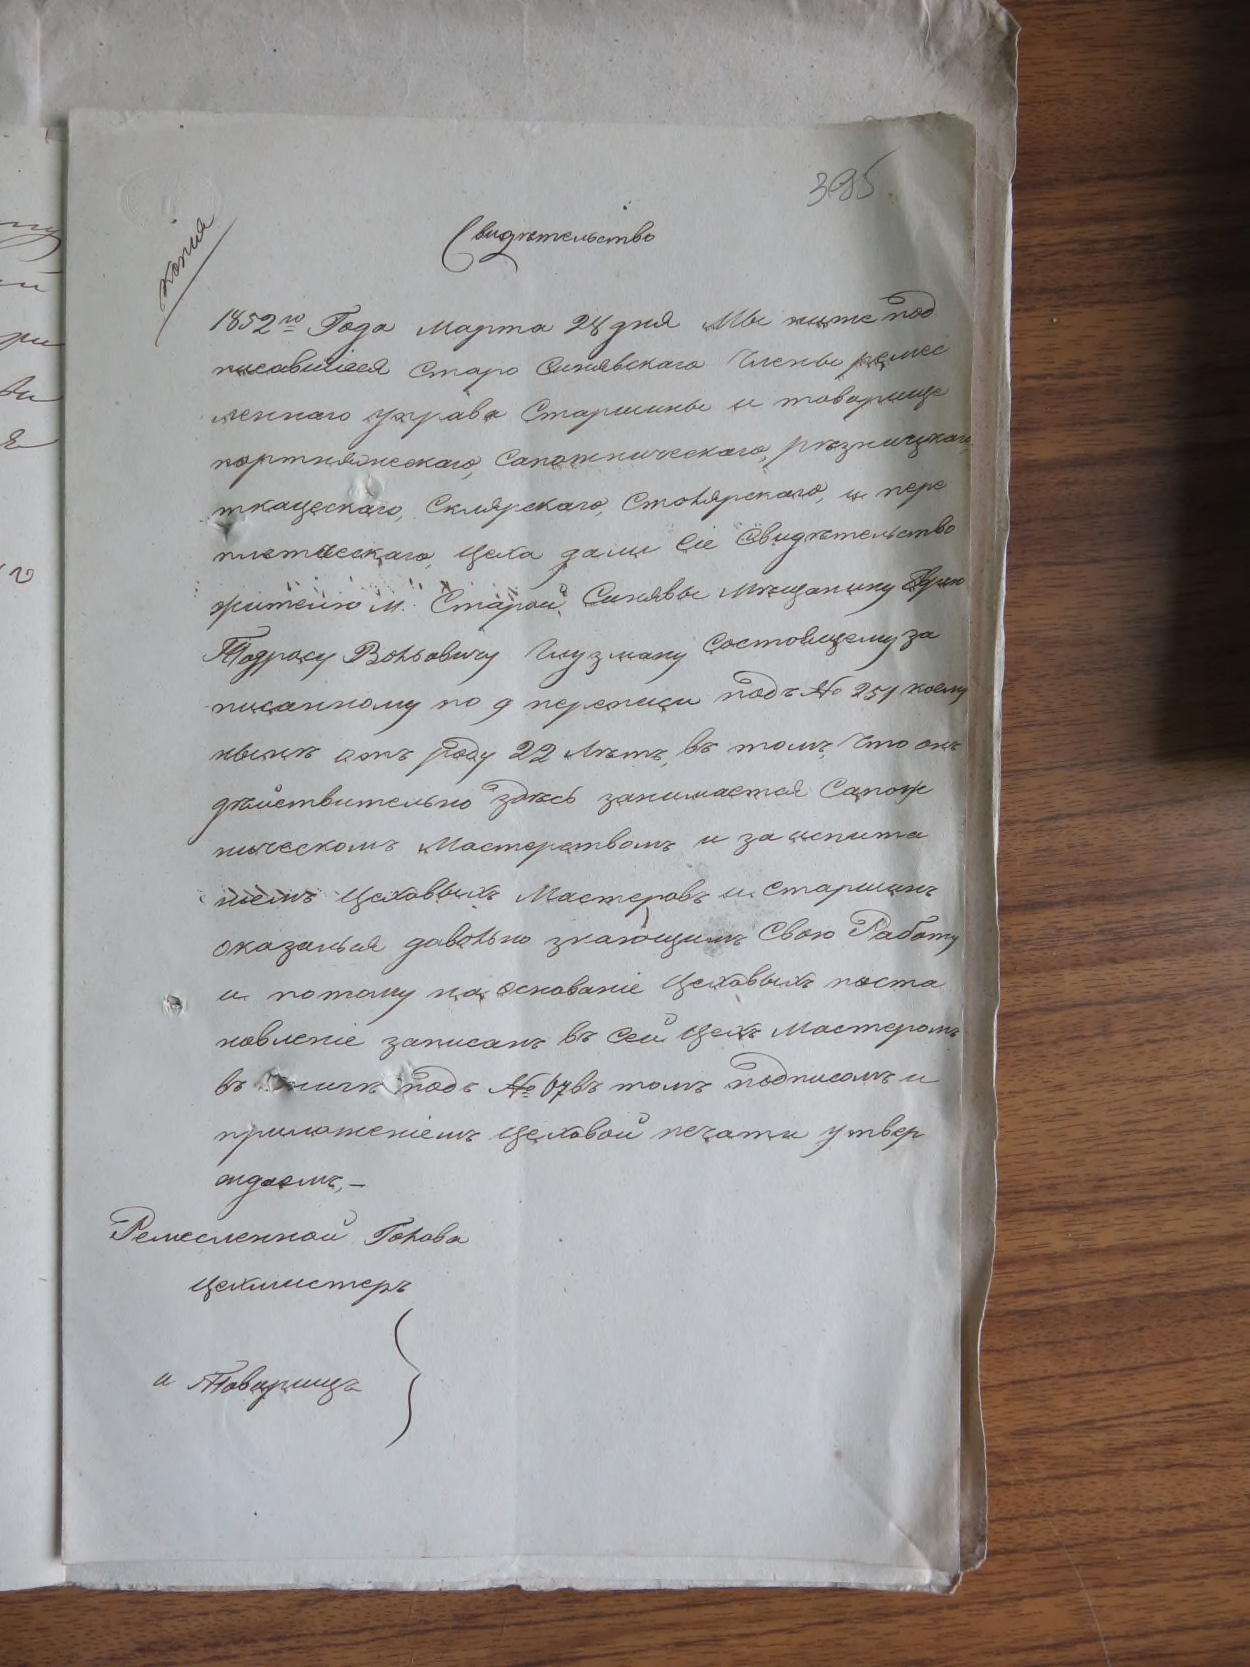 395
копія
Свидѣтельство
1852го Года Марта 28 дня Мы ниже под
писавшіеся Старо Синявскаго Члены ремес
леннаго управа Старшины и товарище
портняжескаго, сапожническаго, рѣзницкаго,
ткацескаго, Склярскаго, Столярскаго, и пере
плетческаго, цеха дали сіе Свидѣтельство
жителю м. Старой Синявы Мѣщанину
Тодросу Вольовичу Глузману состоящему за
писанному по 9 переписи подъ № 251 коему
нынѣ отъ роду 22 лѣтъ, въ томъ, что онъ
дѣйствительно здѣсь занимается Сапож
ническомъ Мастерствомъ и за испита
ніемъ Цеховыхъ Мастеровъ и старшинъ
оказалься довольно знающимъ Свою Работу
и потому на основаніе Цеховыхъ поста
новленіе записанъ въ сей Цехъ Мастеромъ
въ книгѣ подъ № 67 въ томъ подписомъ и
приложеніемъ Цеховой печати утвер
ждаемъ,—
Ремесленной Голова
Цехмистеръ
и Товарищъ